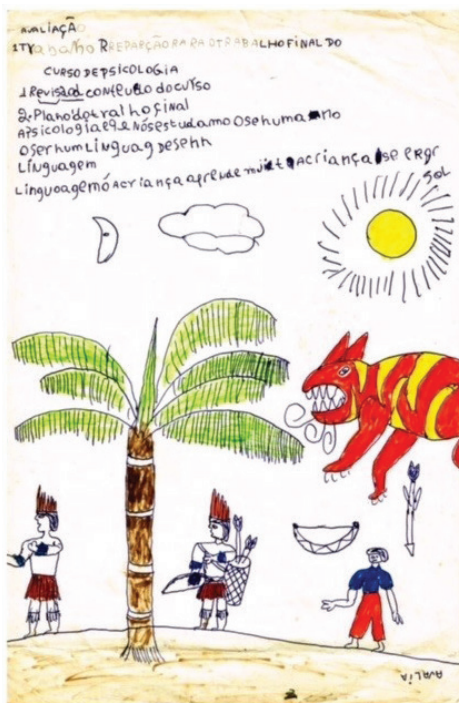 AVALIAÇÃO
1 Trabalho RREPARÇÃO RA RA O TRABALHO FINAL DO
CURSO DE PSICOLOGIA
1 Revisão conteudo do curso
2. Plano do tralho final
A psicologia e Nós estudamo O sehumano
O ser hum Linguag Desenh
Linguagem
Linguoagem ó A criança aprende A criança se
SOL
AVALIA